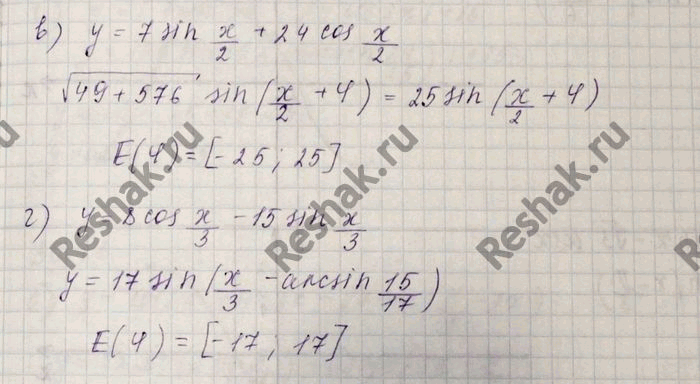 в) y = 7 sin x/2 + 24 cos x/2
√(49 + 576) sin(x/2 + 4) = 25 sin(x/2 + 4)
E(4) = [-25; 25]
г) y = 8 cos x/3 - 15 sin x/3
y = 17 sin(x/3 - arcsin 15/17)
E(4) = [-17; 17]
Reshak.ru
Reshak.ru
Reshak.ru